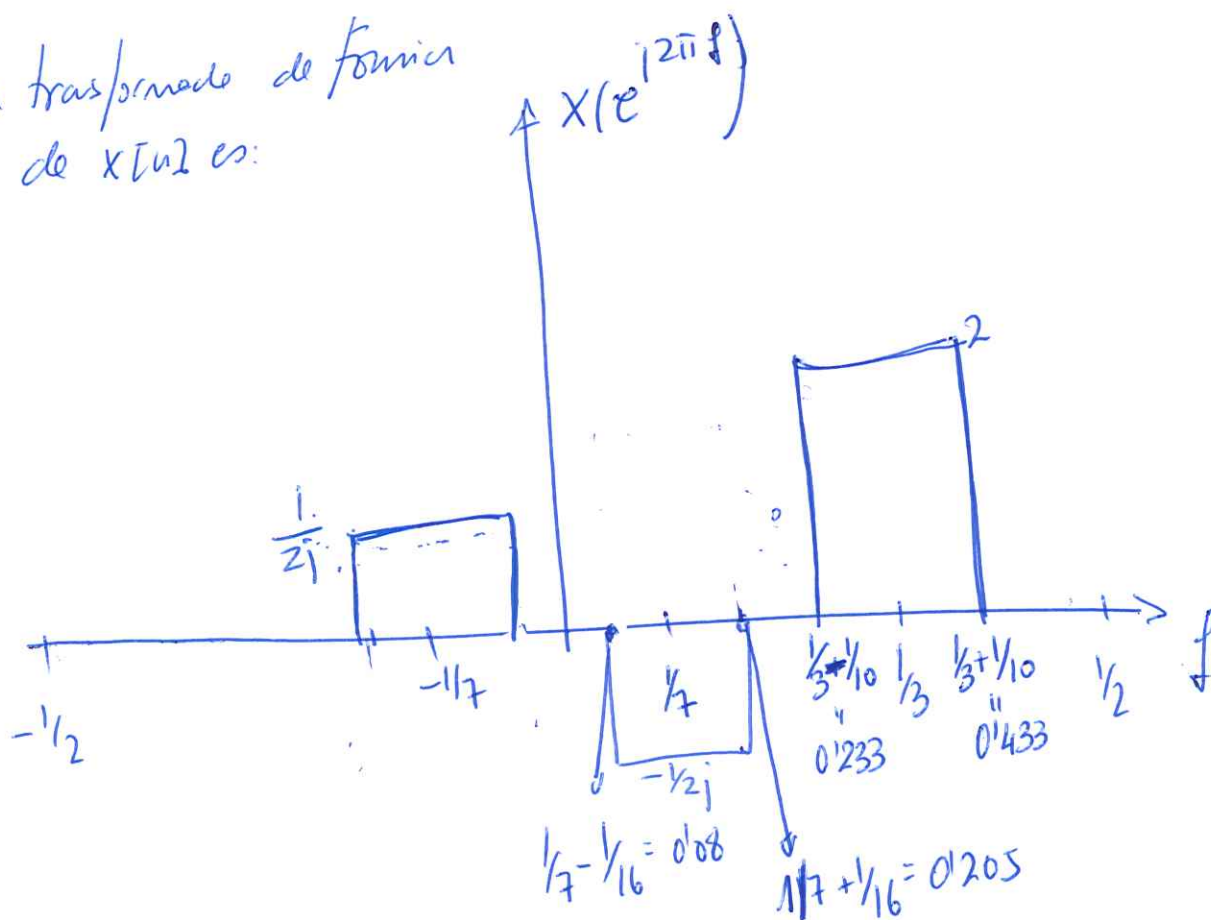 trasformada de Fourier
de x[n] es:
X(e^{j2πf})
2
1/2j
-1/2
-1/7
1/7
-1/2j
1/3-1/10
"
0'233
1/3
1/3+1/10
"
0'433
1/2
f
1/7-1/16=0'08
1/7+1/16=0'205